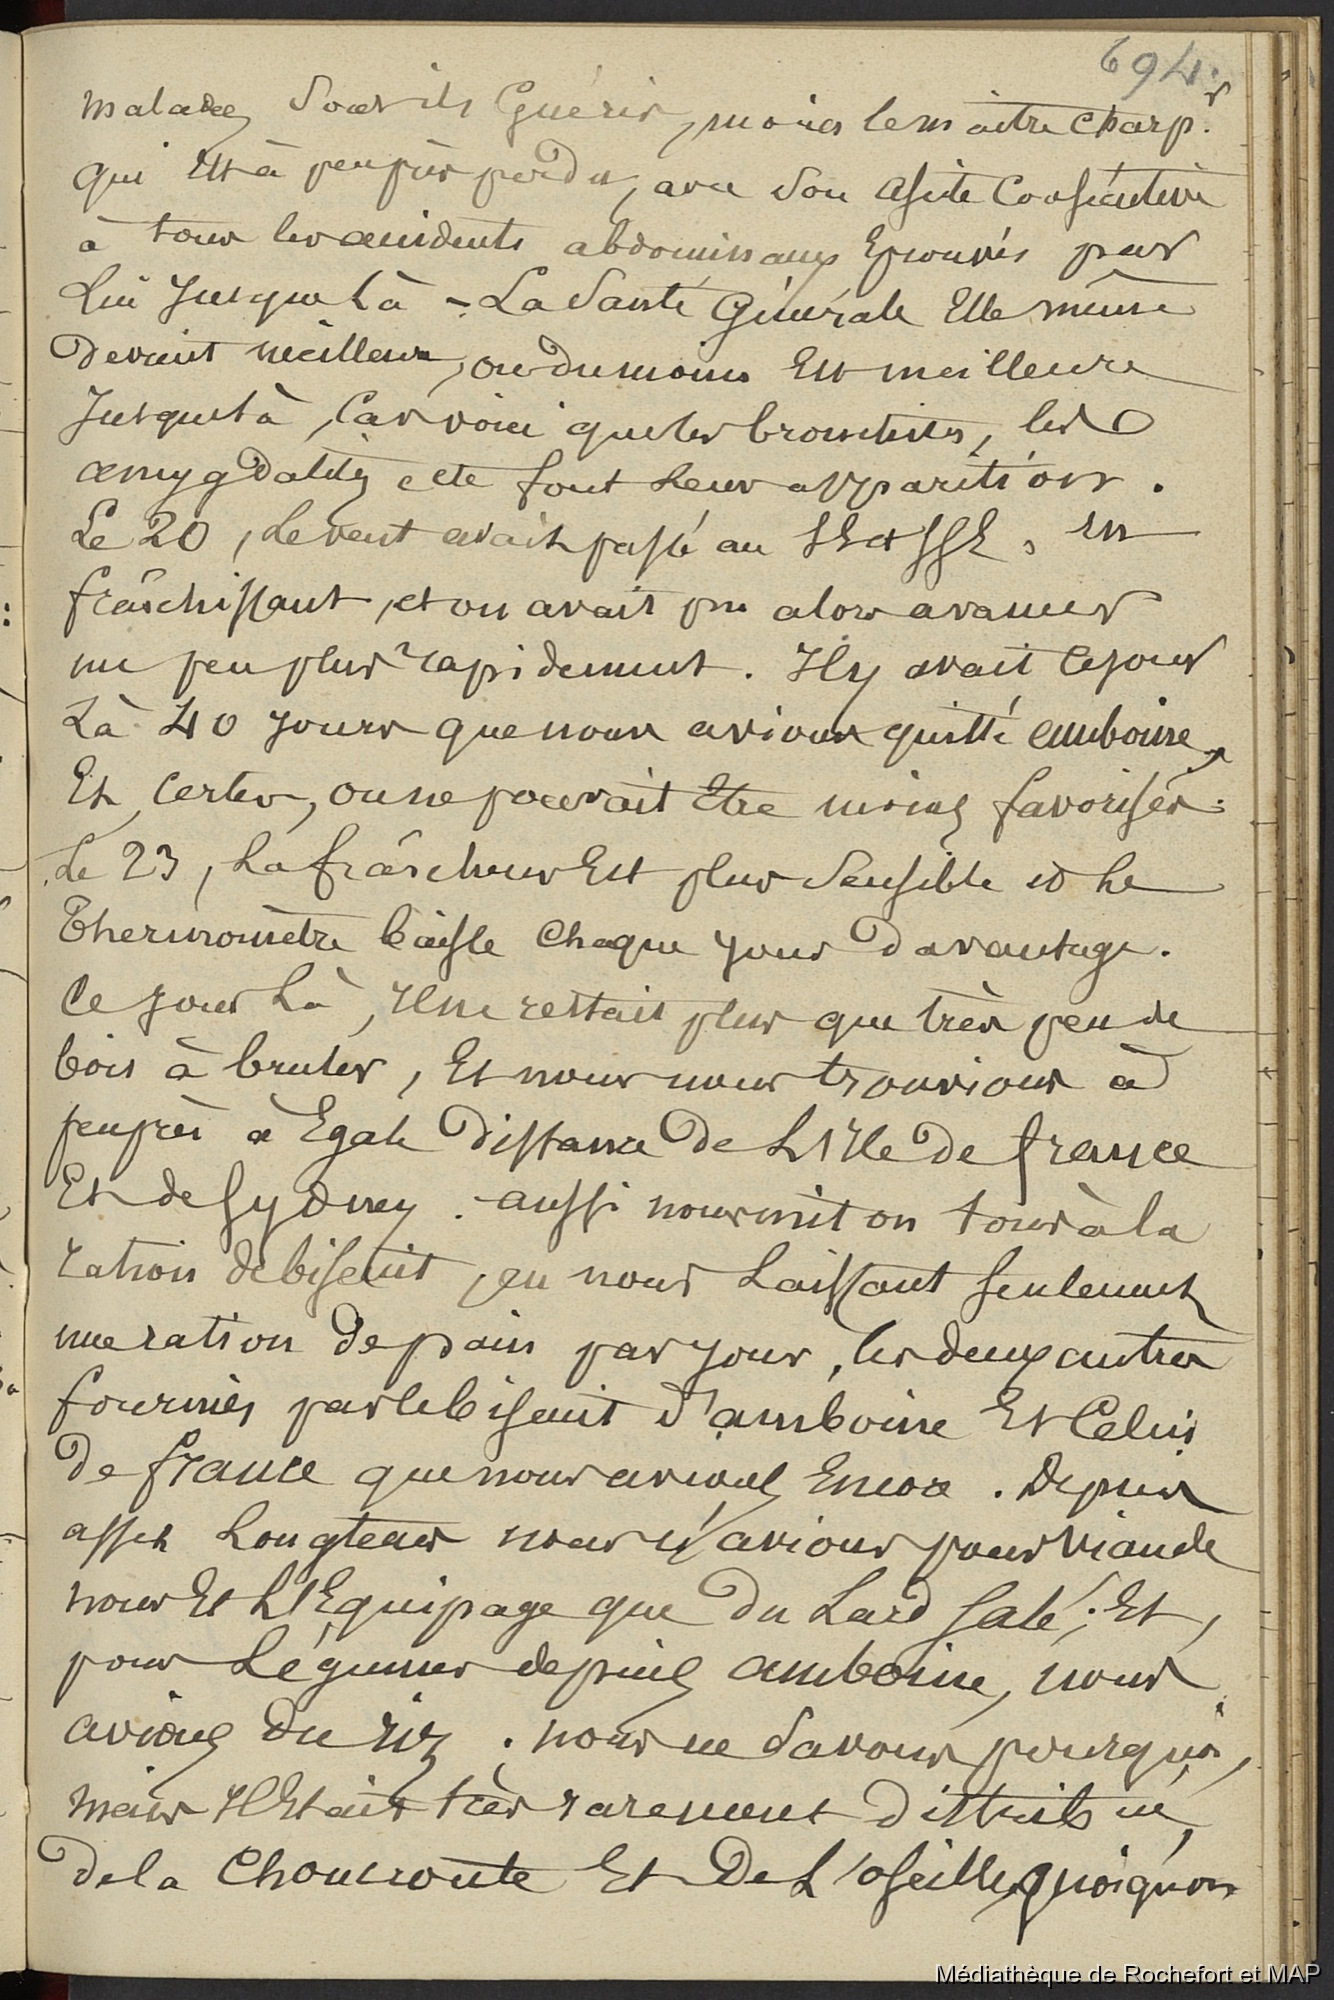 694.
malades sont ils Guéris, moins le maitre charp.r
qui est à peu près perdu, avec son ascite Consécutive
à tous les accidents abdominaux Eprouvés par
Lui Jusque Là - La Santé Générale Elle même
Devient meilleure, ou du moins Est meilleure
Jusque là, Car voici que les bronchites, les
amygdalites ette font Leur apparition.
Le 20, Le vent avait passé au SE et SSE, en
fraîchissant, et on avait pu alors avancer
un peu plus rapidement. Il y avait ce jour
Là 40 jours que nous avions quitté amboine,
Et, Certes, on ne pouvait Etre moins favorisés.
Le 23, La fraîcheur Est plus Sensible et Le
Thermomètre baisse Chaque jour Davantage.
Ce jour Là, Il ne restait plus que très peu de
bois à bruler, Et nous nous trouvions à
peu près à Egale Distance De L'Ile De france
Et de Sydney. aussi nous mit on tous à la
ration de biscuit, en nous Laissant seulement
une ration De pain par jour, les deux autres
fournies par le biscuit d'amboine Et Celui
De france que nous avions Encore. Depuis
assez Longtems nous n'avions pour viande
nous Et L'Equipage que Du Lard salé; Et,
pour Légumes depuis amboine, nous
avions Du riz. nous ne Savons pourquoi,
mais Il Etait très rarement Distribué
de la Choucroute Et De L'oseille, quoiqu'on
Médiathèque de Rochefort et MAP